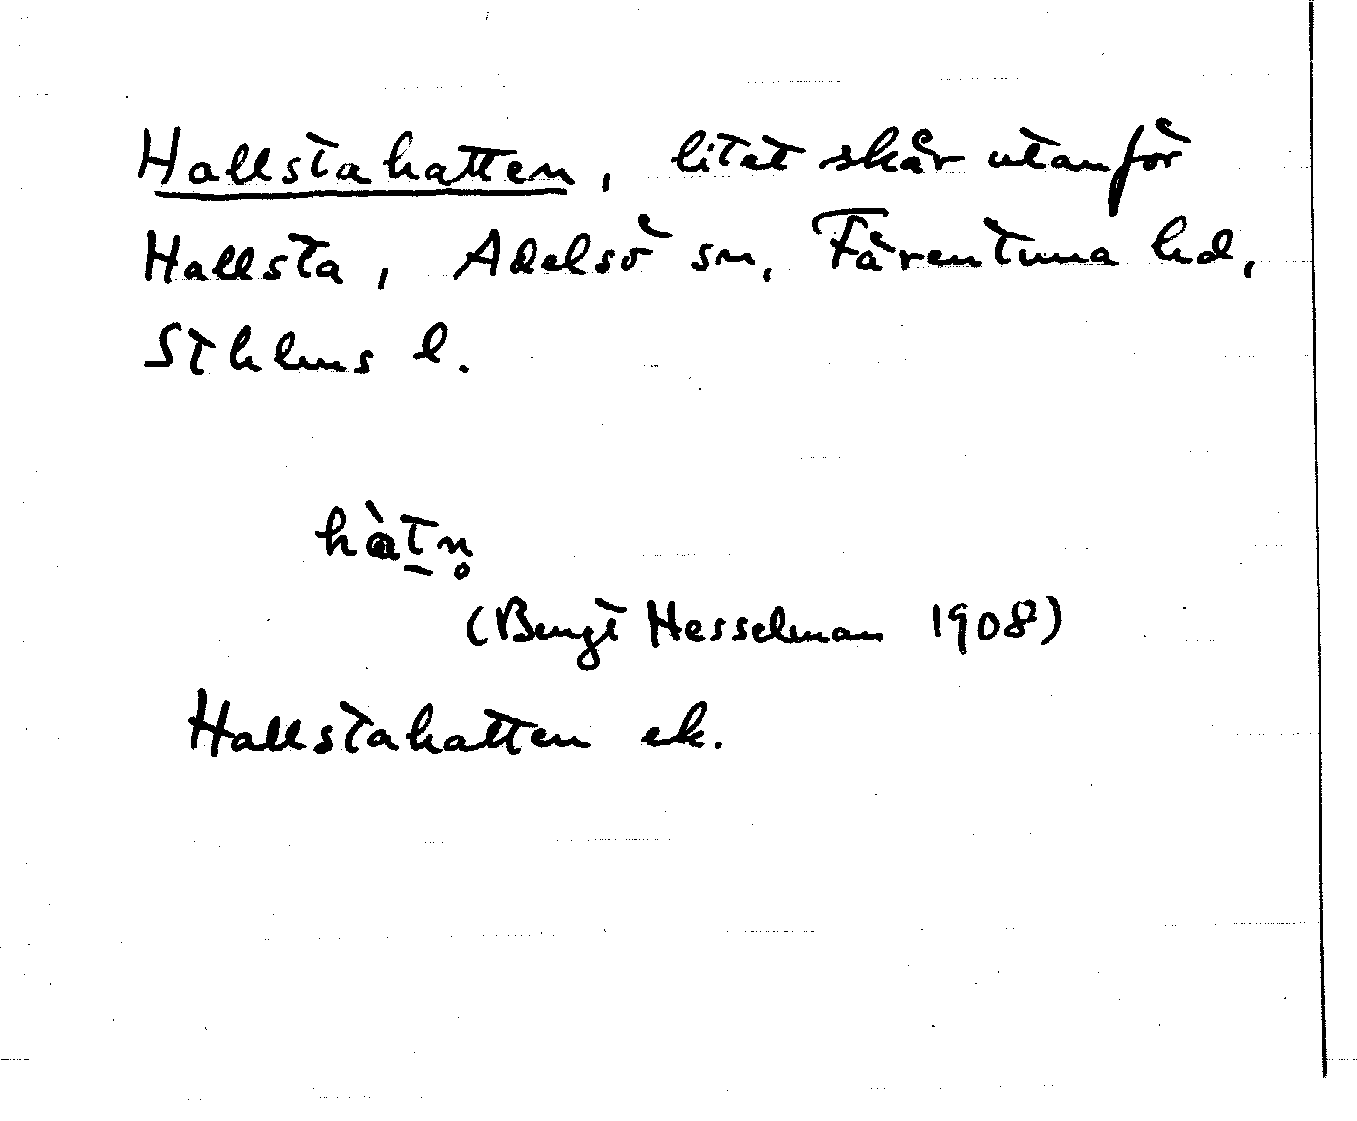 Hallstahatten, litet skär utanför
Hallsta, Adelsö sn, Färentuna hd,
Sthlms l.
hàt̠n̥
(Bengt Hesselman 1908)
Hallstahatten ek.